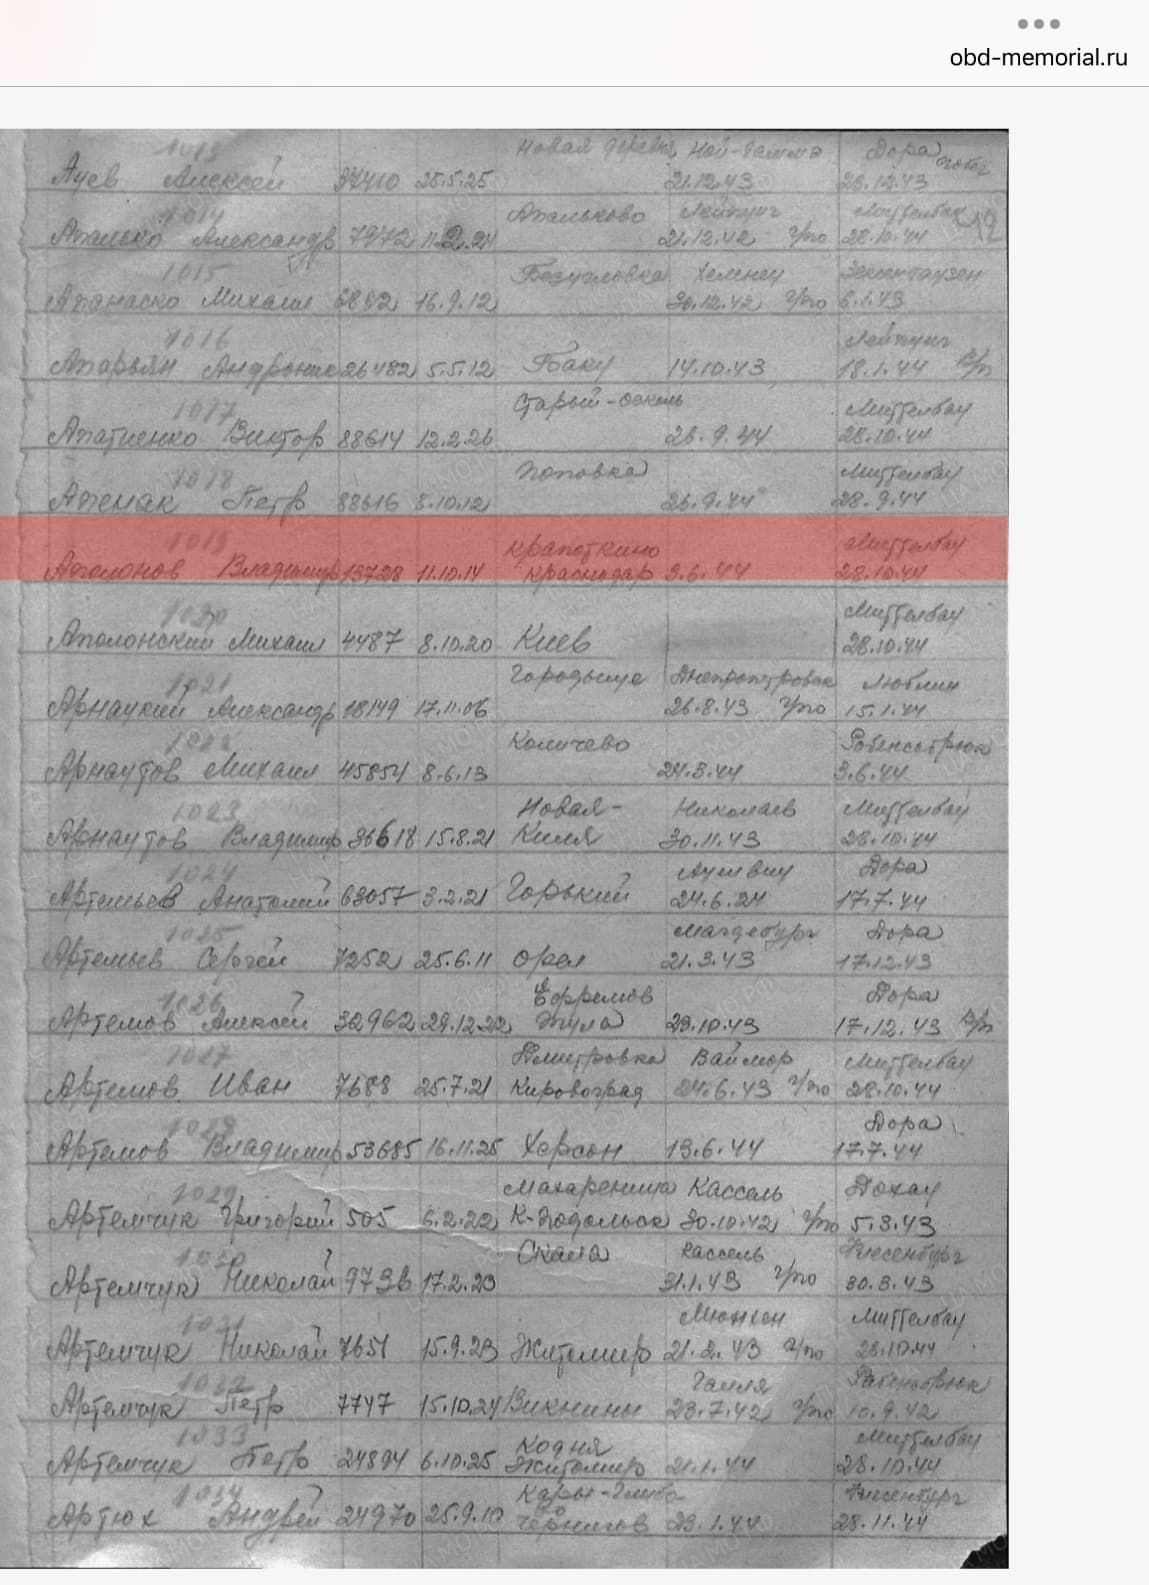 obd-memorial.ru
1013 Новая деревня, Ной-Гаммэ Дора
Ауев Алексей 37410 25.5.25 21.12.43 23.12.43
1014 Апальково Лейпциг Миттелбау 12
Апалько Александр 7972 11.2.24 21.12.42 28.10.44
1015 Безугловка Хемнец Заксенгаузен
Апанаско Михаил 6862 16.9.12 30.12.42 6.1.43
1016 Лейпциг
Апарьян Андроник 26482 5.5.12 Баку 14.10.43 18.1.44
1017 Старый-Оскель Миттелбау
Апатиенко Виктор 88614 12.2.26 26.9.44 28.10.44
1018 Поповка Миттелбау
Апенак Петр 88616 8.10.12 26.9.44 28.9.44
1019 Крапоткино Миттелбау
Аполонов Владимир 13728 11.10.14 Краснодар 3.6.44 28.10.44
1020 Миттелбау
Аполонский Михаил 4487 8.10.20 Киев 28.10.44
1021 Городыще Днепропетровск Люблин
Арнацкий Александр 18149 17.11.06 26.8.43 15.1.44
1022 Количево Равенсбрюк
Арнаутов Михаил 45854 8.6.13 24.3.44 3.6.44
1023 Новая- Николаев Миттелбау
Арнаутов Владимир 36618 15.8.21 Килия 30.11.43 28.10.44
1024 Аушвиц Дора
Артемьев Анатолий 63057 3.2.21 Горький 24.6.24 17.7.44
1025 Магдебург Дора
Артемьев Сергей 7252 25.6.11 Орел 21.3.43 17.12.43
1026 Ефремов Дора
Артемов Алексей 32962 29.12.22 Тула 23.10.43 17.12.43
1027 Дмитровка Ваймор Миттелбау
Артемов Иван 7688 25.7.21 Кировоград 24.6.43 28.10.44
1028 Дора
Артемов Владимир 53685 16.11.25 Херсон 13.6.44 17.7.44
1029 Махареница Кассель Дохау
Артемчук Григорий 505 6.2.22 К-Подольск 30.10.42 5.3.43
1030 Скала Кассель
Артемчук Николай 9736 17.2.23 31.1.43 30.3.43
1031 Мюнхен Миттелбау
Артемчук Николай 7651 15.9.23 Житомир 21.2.43 28.10.44
1032 Галля Равенсбрюк
Артемчук Петр 7747 15.10.24 Викнины 23.7.42 10.9.42
1033 Кодня Миттелбау
Артемчук Петр 24894 6.10.25 Житомир 21.1.44 28.10.44
1034
Артюх Андрей 24970 25.9.10 Чернигов 23.1.44 28.11.44